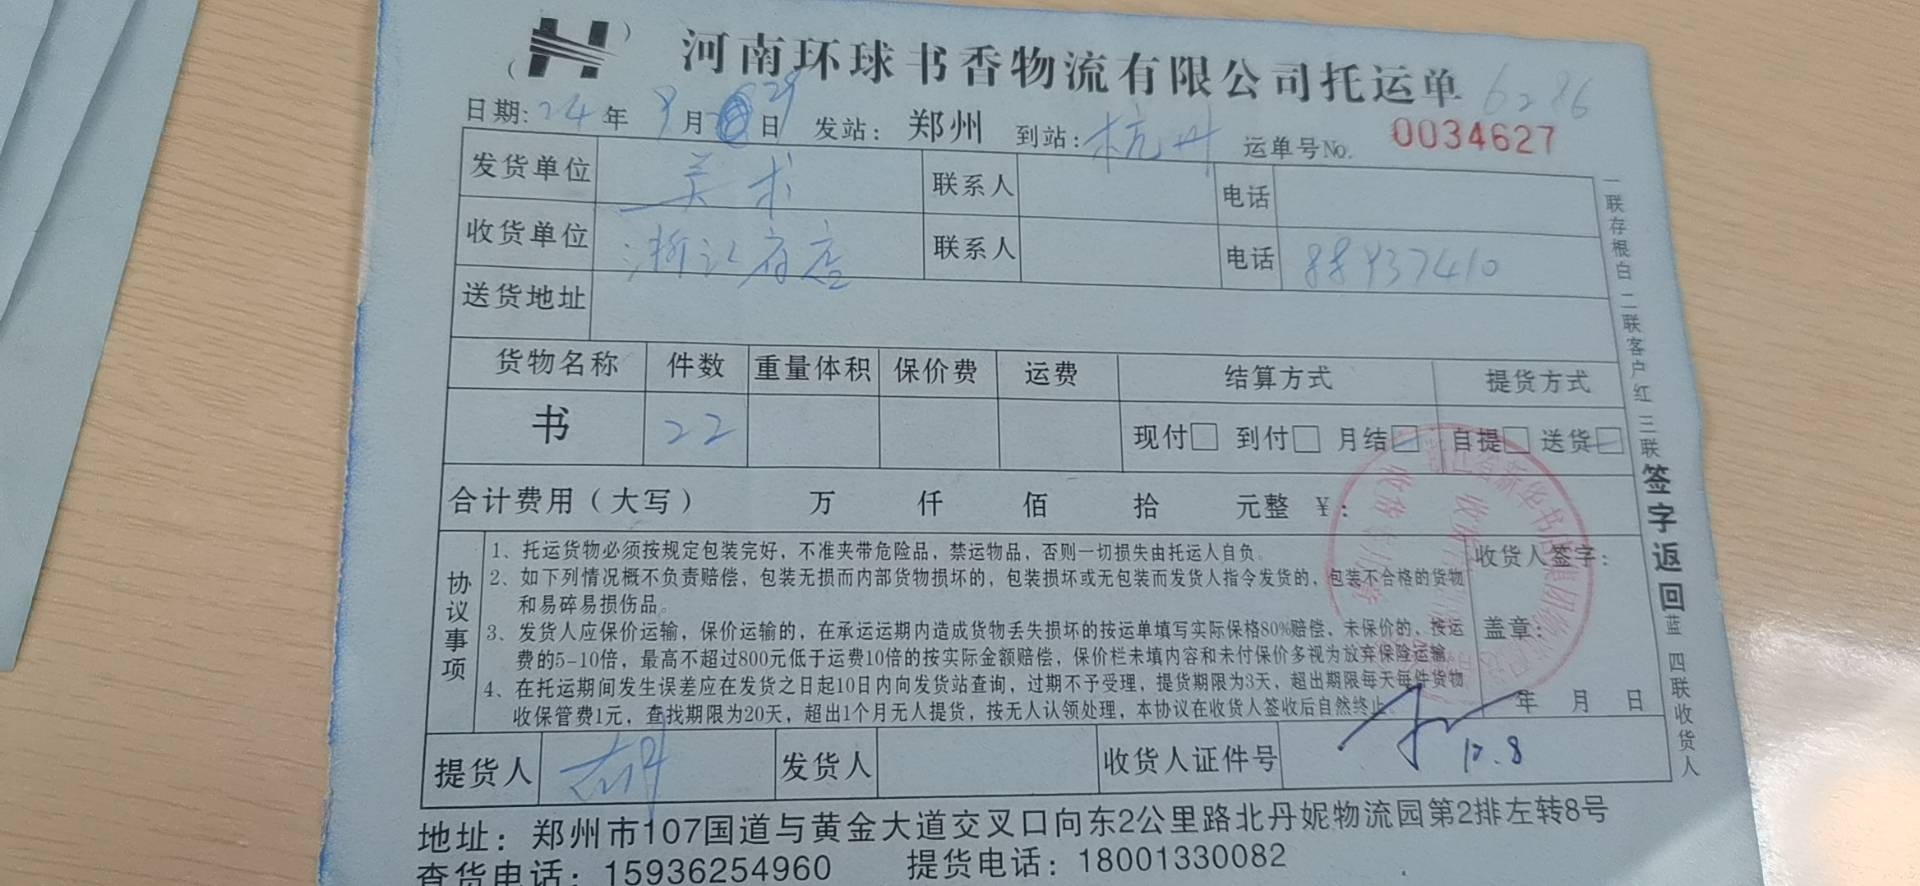 河南环球书香物流有限公司托运单 6286
日期:24年9月29日 发站:郑州 到站:杭州 运单号No. 0034627
发货单位 美术 联系人 电话
收货单位 浙江省店 联系人 电话 88937410
送货地址
货物名称 件数 重量体积 保价费 运费 结算方式 提货方式
书 22 现付□ 到付□ 月结□ 自提□ 送货□
合计费用(大写) 万 仟 佰 拾 元整 ¥:
协议事项
1、托运货物必须按规定包装完好,不准夹带危险品,禁运物品,否则一切损失由托运人自负。
2、如下列情况概不负责赔偿,包装无损而内部货物损坏的,包装损坏或无包装而发货人指令发货的,包装不合格的货物
和易碎易损伤品。
3、发货人应保价运输,保价运输的,在承运运期内造成货物丢失损坏的按运单填写实际保格80%赔偿,未保价的,按运
费的5-10倍,最高不超过800元低于运费10倍的按实际金额赔偿,保价栏未填内容和未付保价多视为放弃保险运输。
4、在托运期间发生误差应在发货之日起10日内向发货站查询,过期不予受理,提货期限为3天,超出期限每天每件货物
收保管费1元,查找期限为20天,超出1个月无人提货,按无人认领处理,本协议在收货人签收后自然终止。
收货人签字:
盖章:
年 月 日
提货人 发货人 收货人证件号 10.8
地址:郑州市107国道与黄金大道交叉口向东2公里路北丹妮物流园第2排左转8号
查货电话:15936254960 提货电话:18001330082
一联存根白 二联客户红 三联签字返回蓝 四联收货人